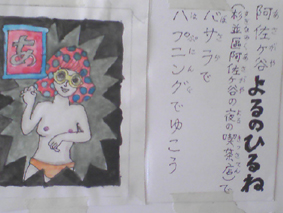 阿佐ヶ谷
よるのひるね
(杉並區阿佐ヶ谷の夜の喫茶店)で
バサラで
ハプニングでゆこう
あ